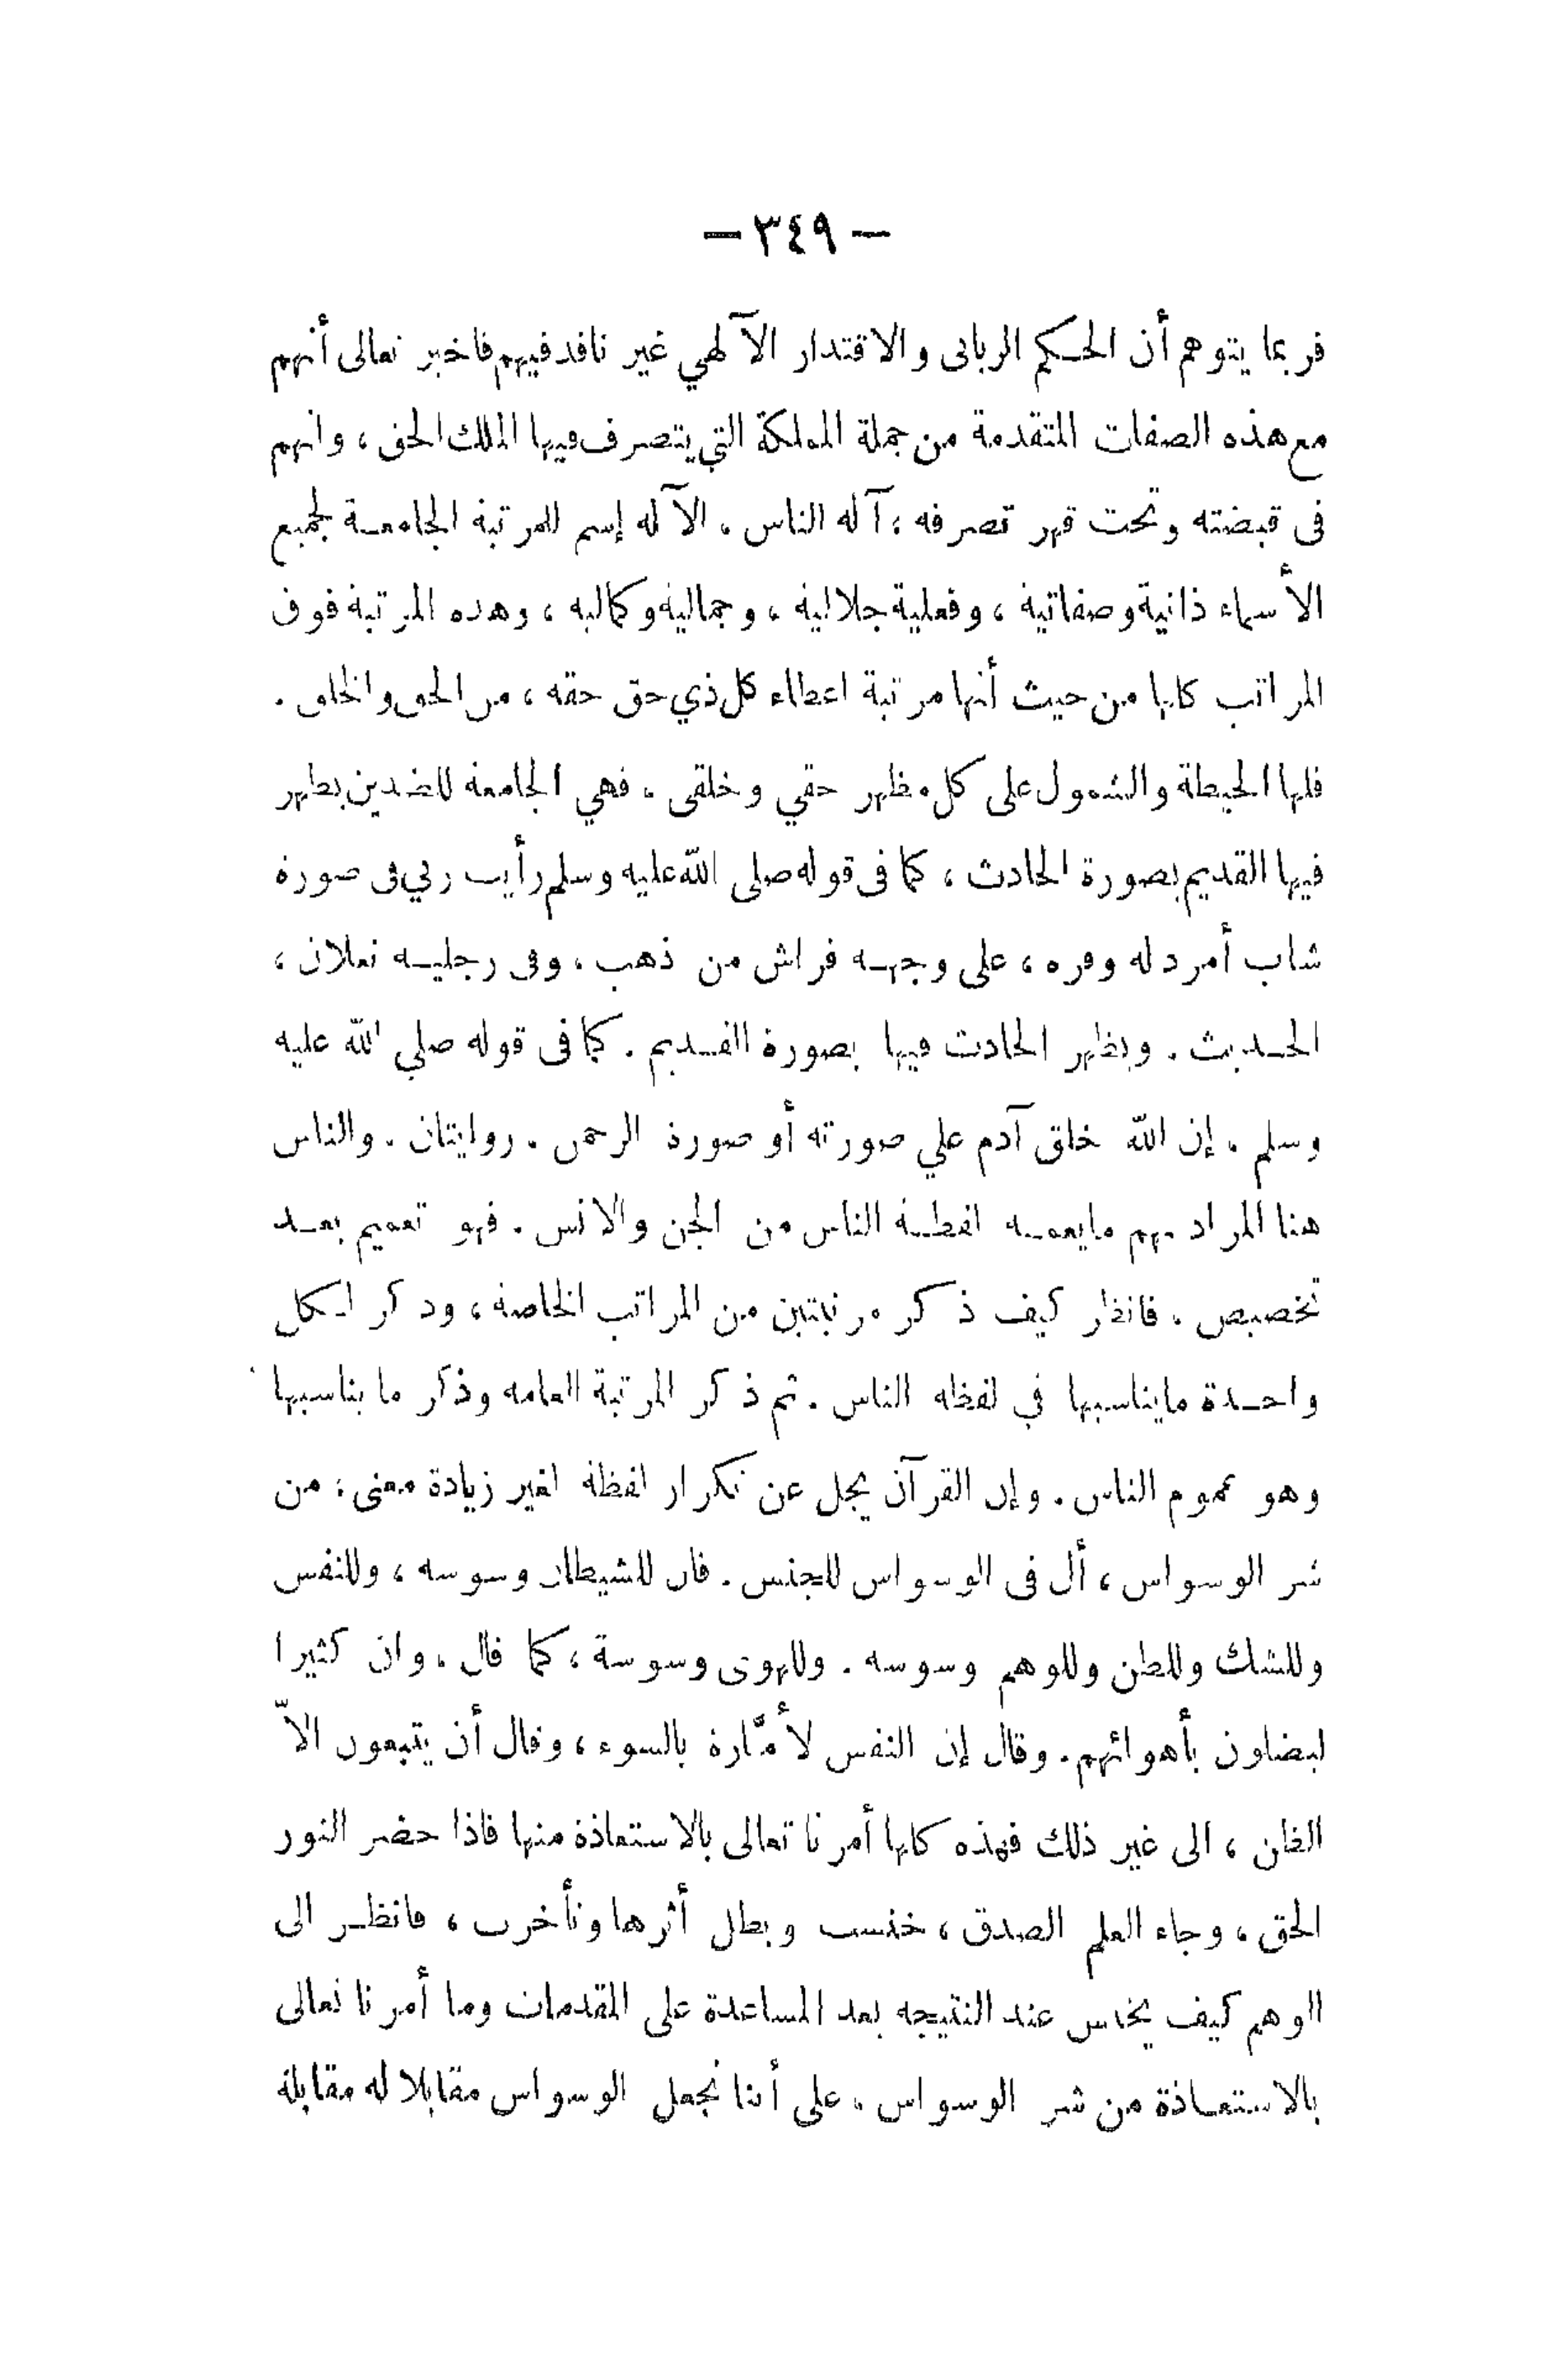 — ٣٤٩ —
فربما يتوهم أن الحكم الربانى والاقتدار الآلهي غير نافذ فيهم فاخبر تعالى أنهم
مع هذه الصفات المتقدمة من جملة المملكة التي يتصرف فيها الملك الحق ، وانهم
فى قبضته وتحت قهر تصرفه ؛ آله الناس . الآله إسم للمرتبة الجامعة لجميع
الأسماء ذاتية وصفاتية ، وفعلية جلالية ، وجمالية وكمالية ، وهذه المرتبة فوق
المراتب كلها من حيث أنها مرتبة اعطاء كل ذي حق حقه ، من الحق والخلق .
فلها الحيطة والشمول على كل مظهر حقي وخلقى . فهي الجامعة للضدين يظهر
فيها القديم بصورة الحادث ، كما فى قوله صلى الله عليه وسلم رأيت ربي فى صورة
شاب أمرد له وفره ، على وجهه فراش من ذهب ، وفى رجليه نعلان ،
الحديث . ويظهر الحادث فيها بصورة القديم . كما فى قوله صلي الله عليه
وسلم . إن الله خلق آدم علي صورته أو صورة الرحمن . روايتان . والناس
هنا المراد بهم مايعمه لفظة الناس من الجن والانس . فهو تعميم بعد
تخصيص . فانظر كيف ذكر مرتبتين من المراتب الخاصة ، وذكر لكل
واحدة مايناسبها في لفظه الناس . ثم ذكر المرتبة العامه وذكر ما يناسبها
وهو عموم الناس . وإن القرآن يجل عن تكرار لفظة لغير زيادة معنى ؛ من
شر الوسواس ، أل فى الوسواس للجنس . فان للشيطان وسوسه ، وللنفس
وللشك وللظن وللوهم وسوسه . وللهوى وسوسة ، كما قال . وان كثيرا
ليضلون بأهوائهم . وقال إن النفس لأمّارة بالسوء ، وقال أن يتبعون الاّ
الظن ، الى غير ذلك فهذه كلها أمرنا تعالى بالاستعاذة منها فاذا حضر النور
الحق ، وجاء العلم الصدق ، خنست وبطل أثرها وتأخرت ، فانظر الى
الوهم كيف يخنس عند النتيجه بعد المساعدة على المقدمات وما أمرنا تعالى
بالاستعاذة من شر الوسواس . على أننا نجعل الوسواس مقابلا له مقابلة